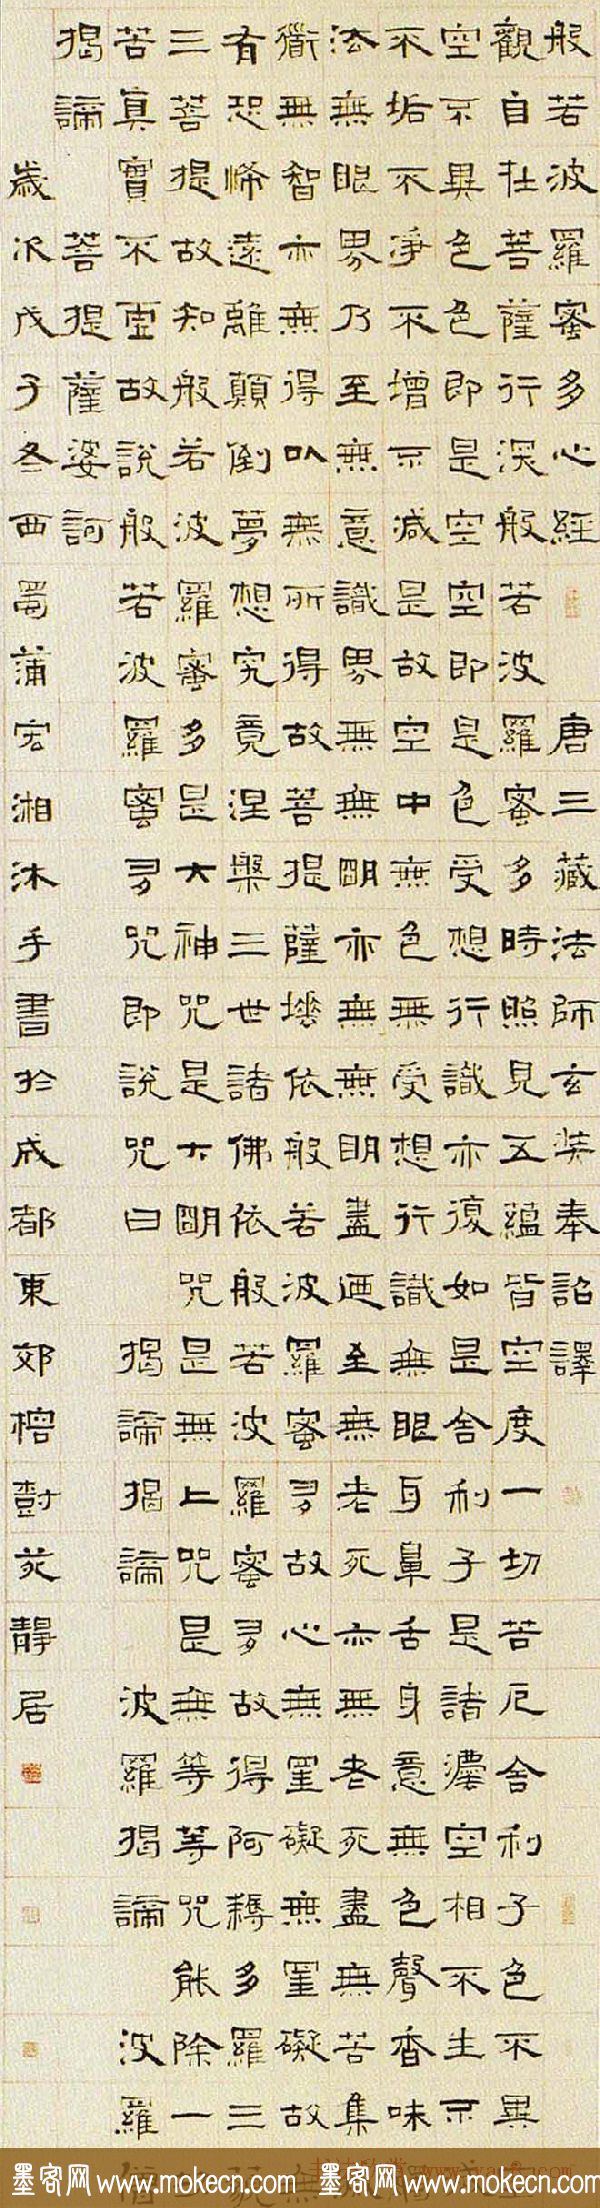 般若波羅蜜多心經 唐三藏法師玄奘奉詔譯
觀自在菩薩行深般若波羅蜜多時照見五蘊皆空度一切苦厄舍利子色不異
空不異色色即是空空即是色受想行識亦復如是舍利子是諸灋空相不生不
不垢不淨不增不減是故空中無色無受想行識無眼耳鼻舌身意無色聲香味
法無眼界乃至無意識界無無明亦無無明盡迺至無老死亦無老死盡無苦集
衟無智亦無得以無所得故菩提薩埵依般若波羅蜜多故心無罣礙無罣礙故
有恐怖遠離顛倒夢想究竟涅槃三世諸佛依般若波羅蜜多故得阿耨多羅三
三菩提故知般若波羅蜜多是大神咒是大明咒是無上咒是無等等咒能除一
苦真實不虛故說般若波羅蜜多咒即說咒曰 揭諦揭諦 波羅揭諦 波羅
揭諦 菩提薩婆訶
歲次戊子冬西蜀蒲宏湘沐手書於成都東郊榕樹苑靜居
墨客网 www.mokecn.com 墨客网 www.mokecn.com